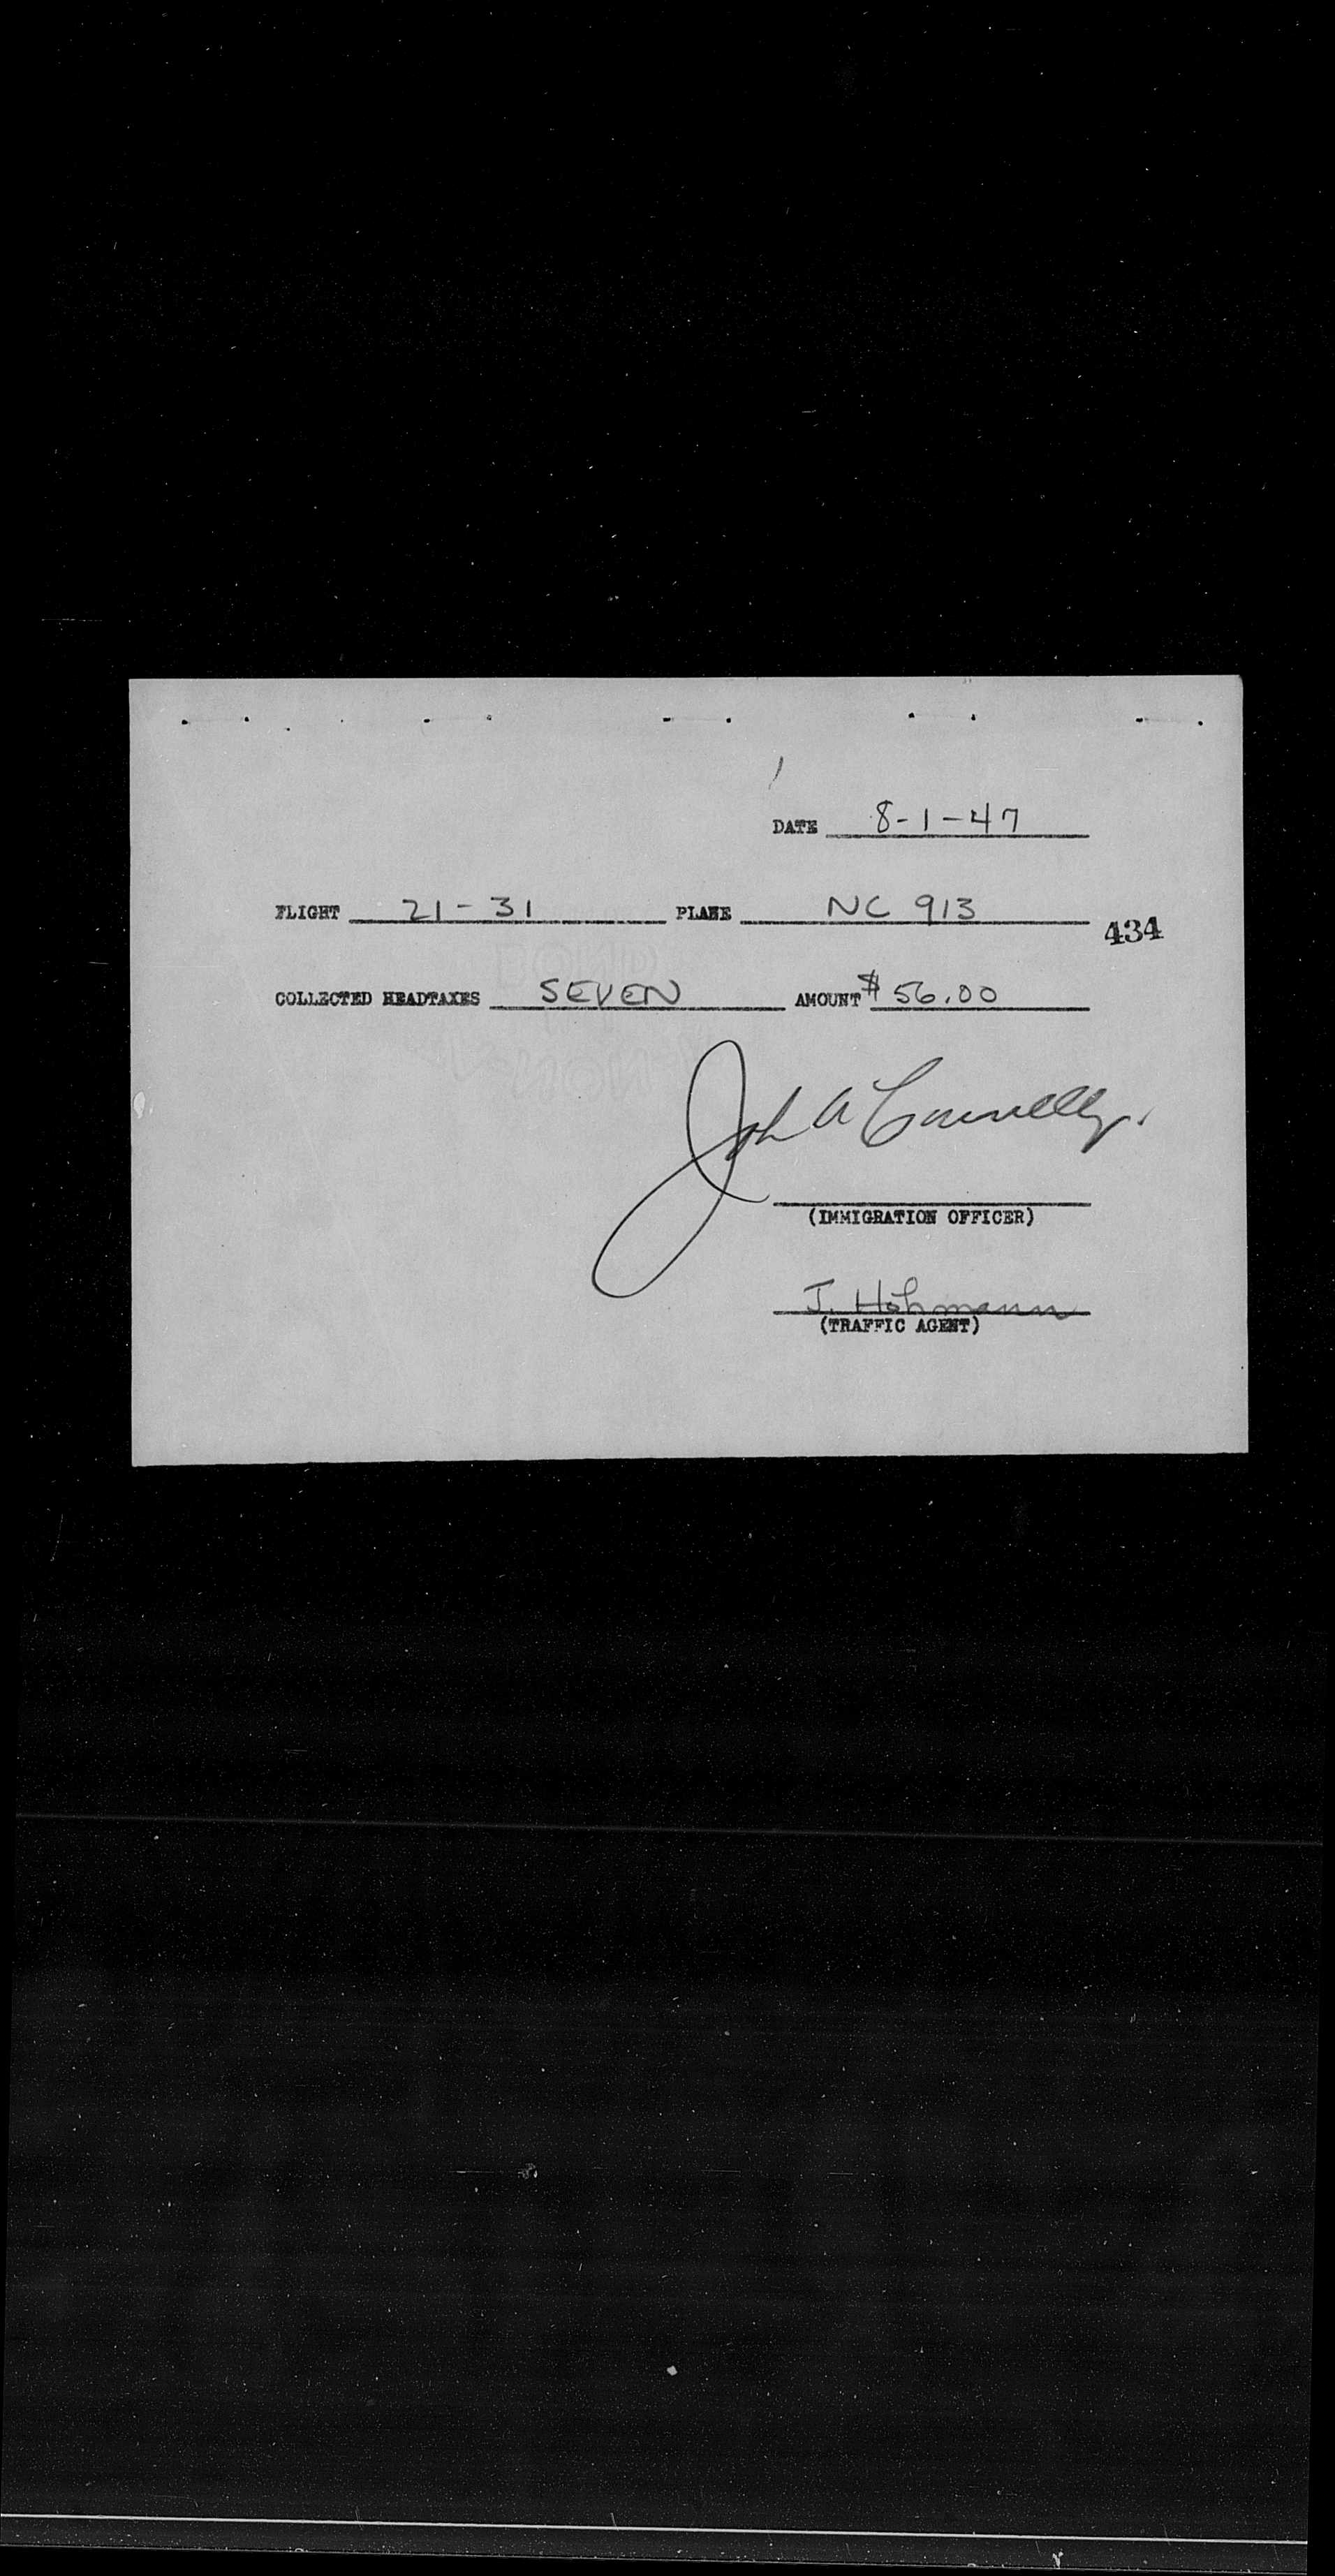 DATE 8-1-47
FLIGHT 21-31 PLANE NC 913
434
COLLECTED HEADTAXES SEVEN AMOUNT $56.00
John A Connelly.
(IMMIGRATION OFFICER)
J. Hohmann
(TRAFFIC AGENT)